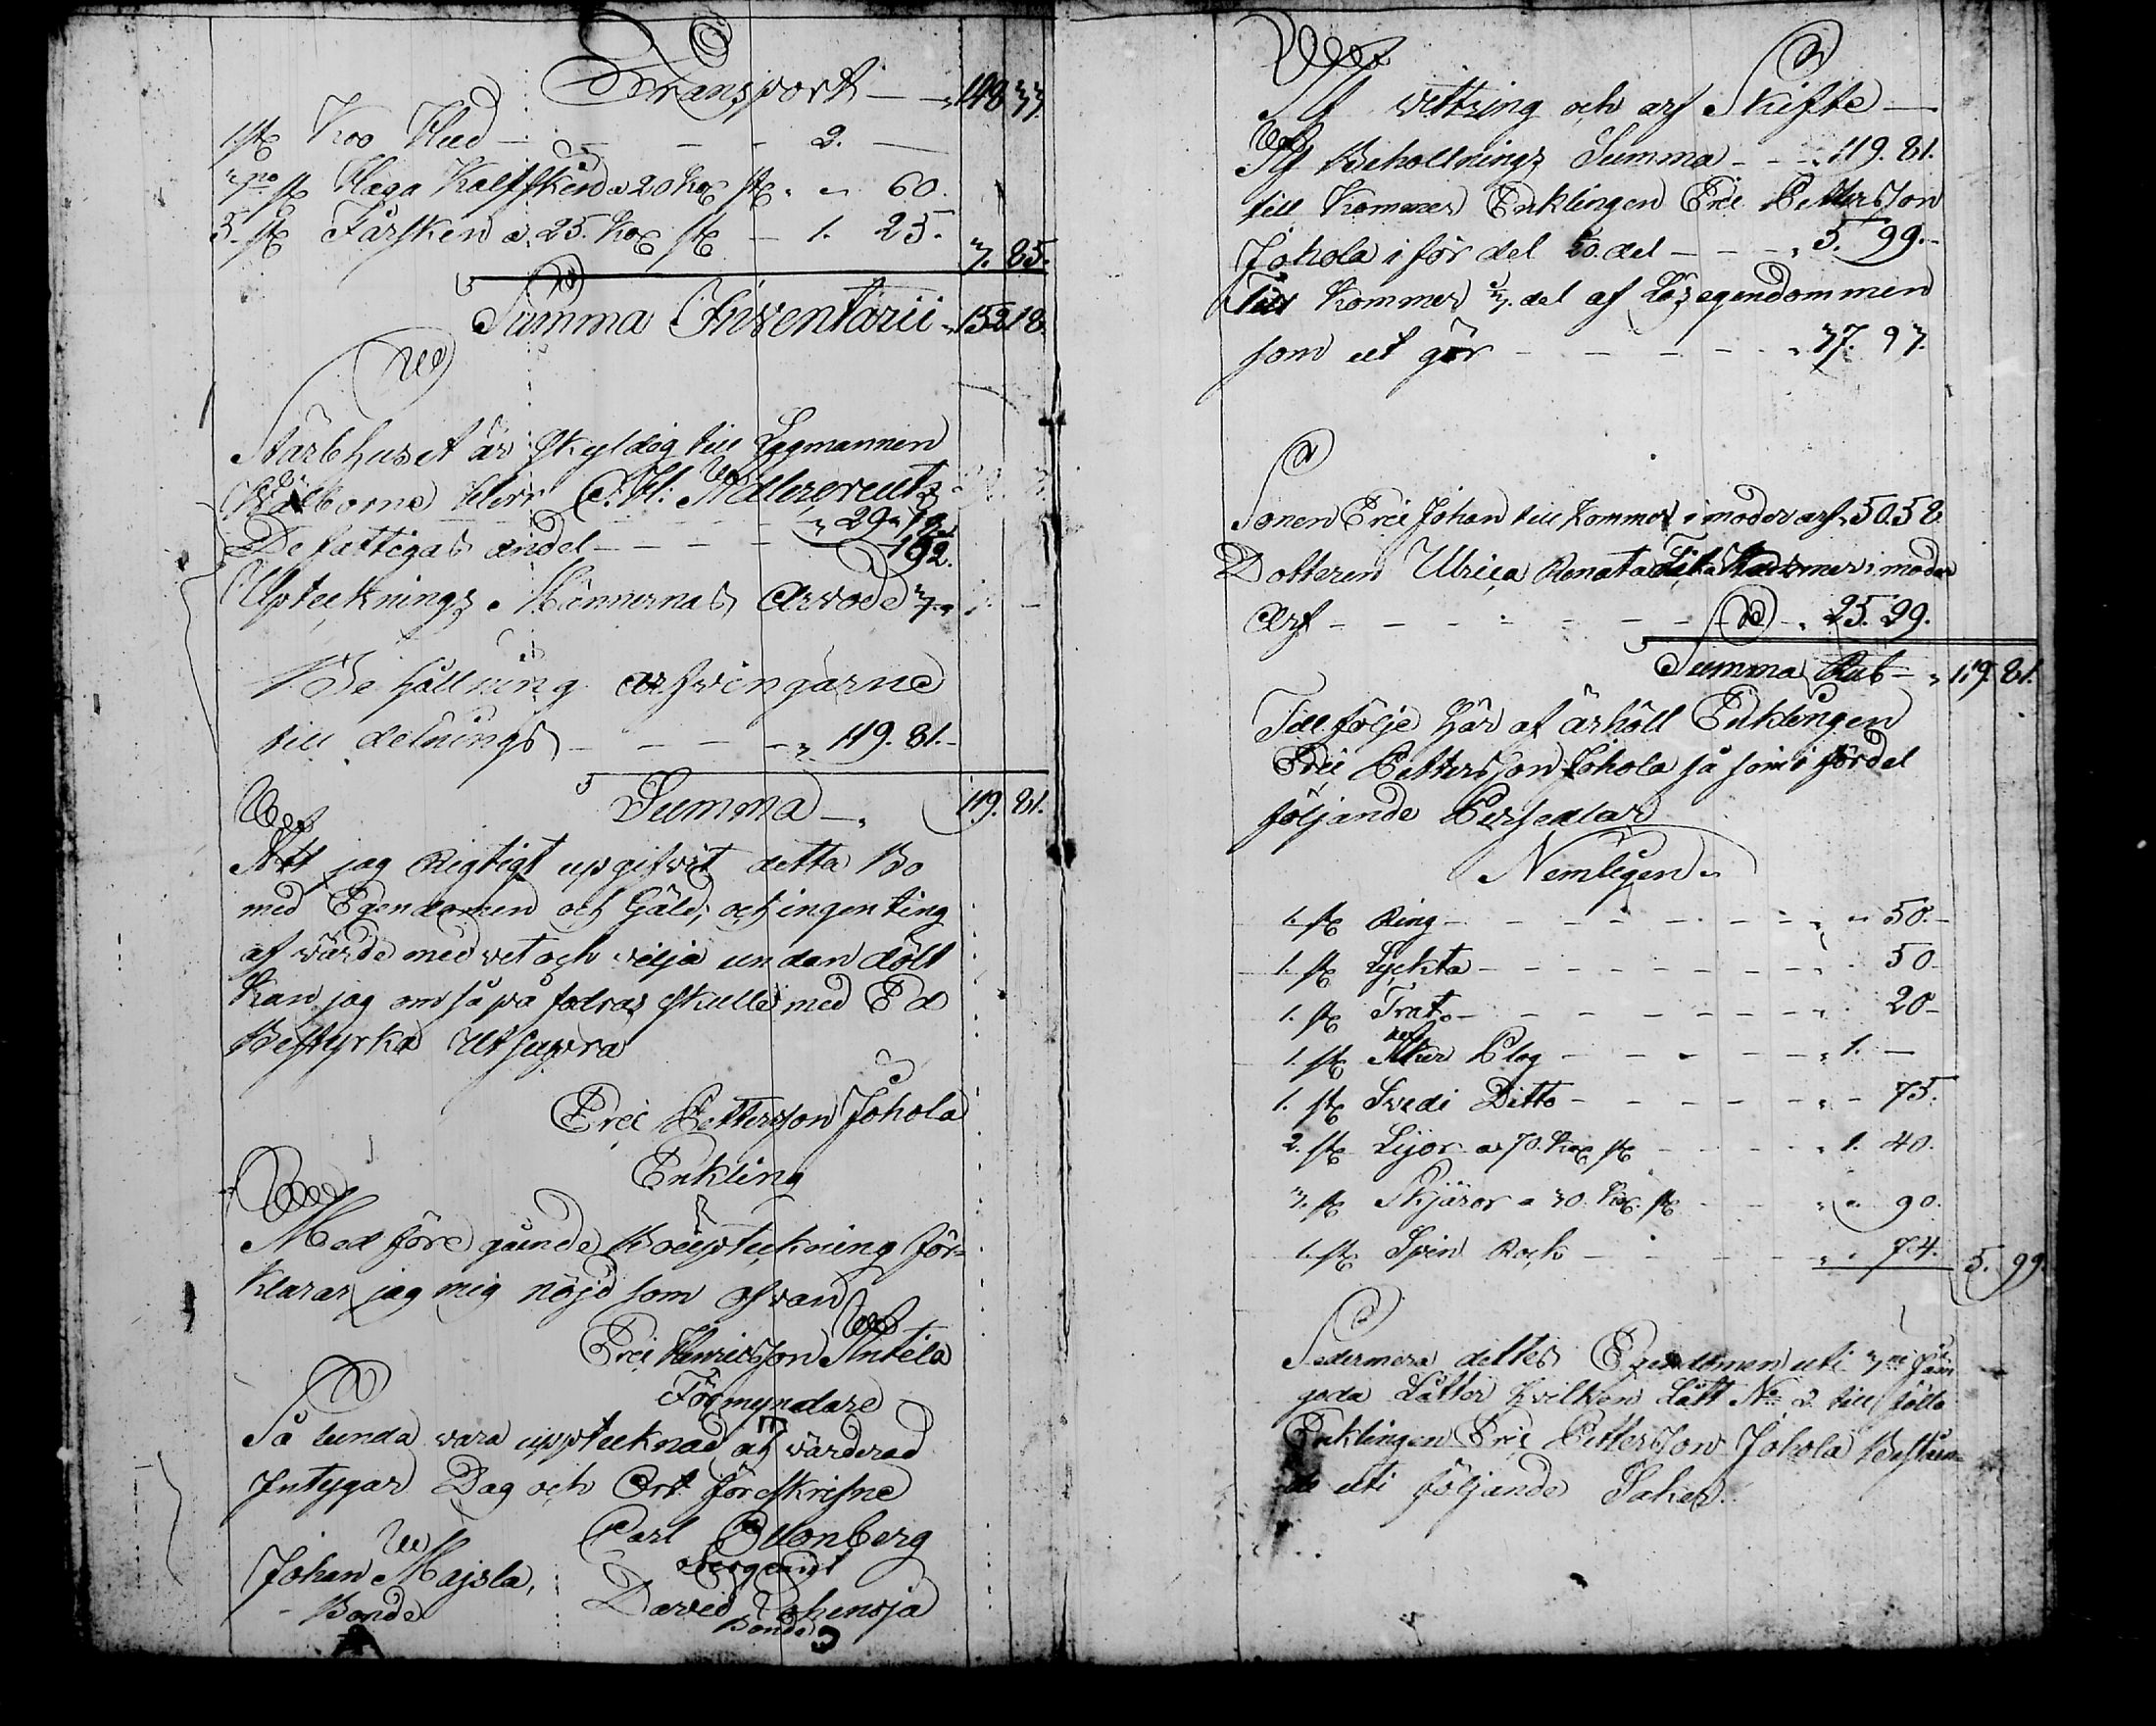 Transport — 148 33.
1. st Koo Hud — — — — 2. —
3ne st Låga Kalfsken a 20 Kop st „ „ 60.
5. st Fårsken a 25. Kop st — 1. 25. 3. 85.
Summa Inventarii „ 152 18.
Stärbhuset är skyldig till Lagmannen
Välborne Herr C. H: Adlercreutz
— — — „ 29 „ 18
De fattigas andel — — — — 192.
Upteeknings Männernas Arvode 3 „
Behållning arfvingarne
till delnings — — — — „ 119. 81. –
Summa — „ 119. 81.
Att jag Rigtigt upgifvit detta Bo
med Egendomen och Gäld, och ingen ting
af värde med vet och vilja undan dölt
Kan jag om så på fodras skulle med Ed
Bestyrka Ut supra
Eric Pettersson Johola
Enkling
Med föregående Bouptekning för-
klarar jag mig nöjd som ofvan
Eric Henricsson Antila
Förmyndare
Så lunda vara uppteknad och värderad
Intygar Dag och Ort föreskrifne
Carl Ollonberg
Sergeant
Johan Majsla,
Bonde
David
Bonde
Af vittring och arf Skifte —
Af Behollnings Summa — — „ 119. 81.
till Kommer Enklingen Eric Pettersson
Johola i för del 20. del — — — „ 5. 99. –
Till Kommer 1/3. del af Lösegendommen
som ut gör — — — — — „ 37. 93.
Sonen Eric Johan till Kommer i moders arf „ 50. 58.
Dotteren Ulrica Renata Till Kommer i moder
Arf — — — — — — — — „ 25. 29.
Summa Rub — „ 119. 81.
Till följe här af ärhöll Enklingen
Eric Pettersson Johola så som i fördel
följande Persedlar
Nemligen „
1. st Ring — — — — — — — „ „ 50. –
1. st Lyckta — — — — — — — „ 50 –
1. st Trat. — — — — — — — „ 20 –
1. st Åker Plog — — — — — — „ 1. —
1. st Svedi Ditto — — — — — „ – 75.
2. st Lijor a 70. Kop st — — — „ 1. 40.
3. st Skjäror a 30. Kop. st — — „ „ 90.
1. st Spin Rock — — — — „ „ 74. 5. 99
Sedermera deltes Egendomen uti 3ne jäm
goda Låtter hvilken Lått No 2. till föllo
Enklingen Eric Pettersson Johola Bestaen-
de uti följande Saker.